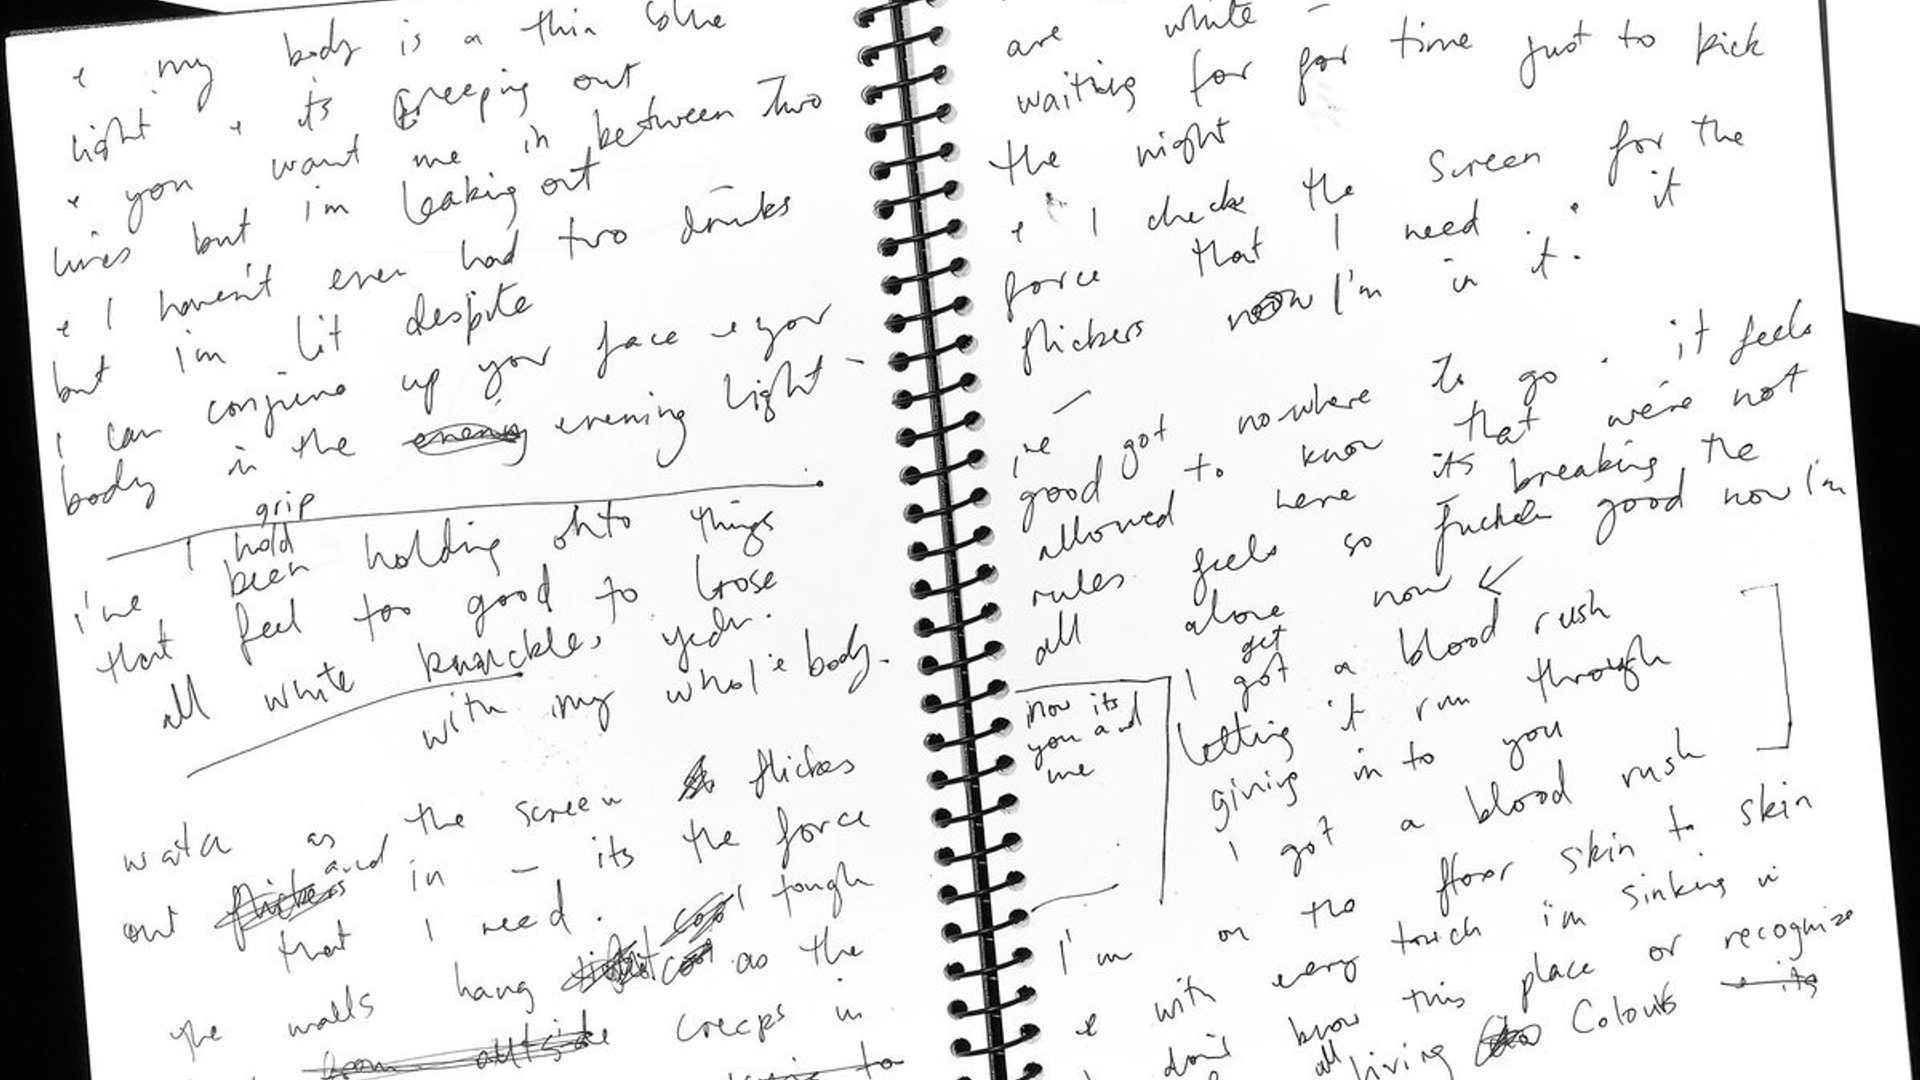 & my body is a thin blue
light & its creeping out
& you want me in between two
lines but i'm leaking out
& I haven't even had two drinks
but i'm lit despite
I can conjure up your face & your
body in the evening light -
grip
I hold
i've been holding onto things
that feel too good to lose
all white knuckles, yeah.
with my whole body.
watch as the screen flickers
out and in - its the force
that I need. tough
the walls hang as the
from outside creeps in
are white -
waiting for for time just to kick
the night
& I check the screen for the
force that I need. & it
flickers now I'm in it.
i've got nowhere to go. it feels
good to know that we're not
allowed here its breaking the
rules feels so fucken good now I'm
all alone now
get
I got a blood rush
letting it run through
giving in to you
I got a blood rush
now its
you and
me
I'm on the floor skin to skin
& with every touch i'm sinking in
I don't know this place or recognize
all living colours & its